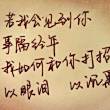 若我会见到你
事隔经年
我如何和你打招
以眼泪 以沉默